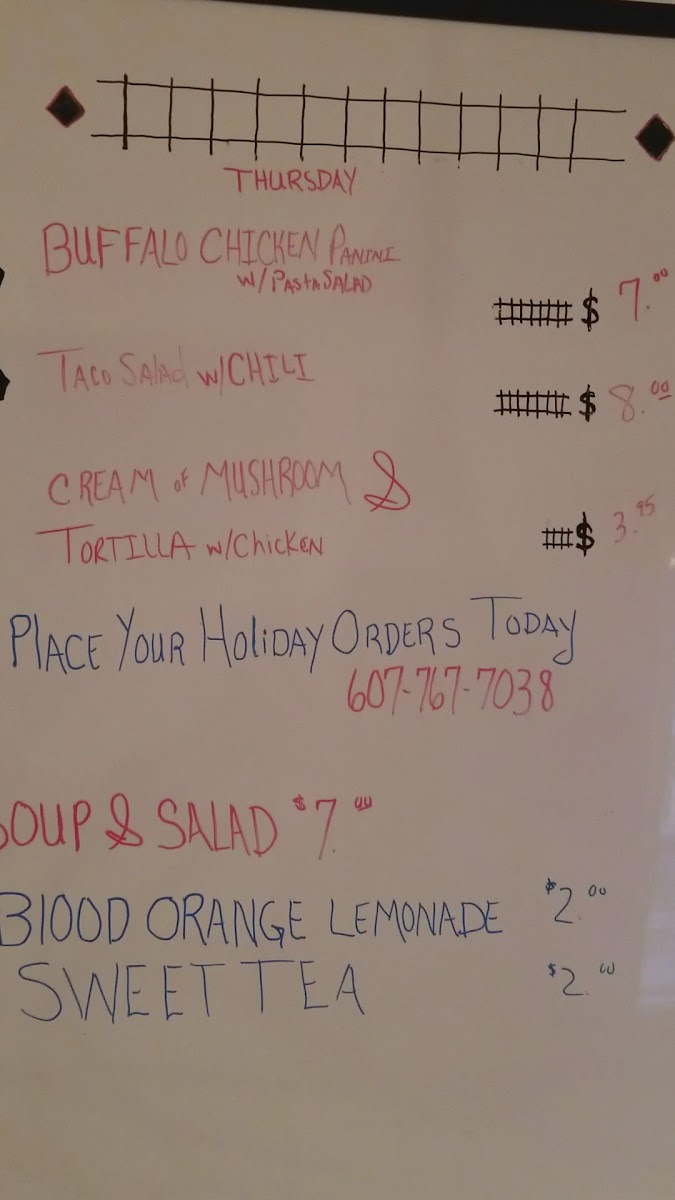 THURSDAY
BUFFALO CHICKEN PANINI
W/PASTA SALAD
$ 7.00
TACO Salad W/CHILI
$ 8.00
CREAM OF MUSHROOM &
TORTILLA W/ChicKEN
$ 3.95
PlACE YOUR HoliDAY ORDERS TODAY
607-767-7038
SOUP & SALAD $7.00
BlOOD ORANGE LEMONADE $2.00
SWEET TEA $2.00